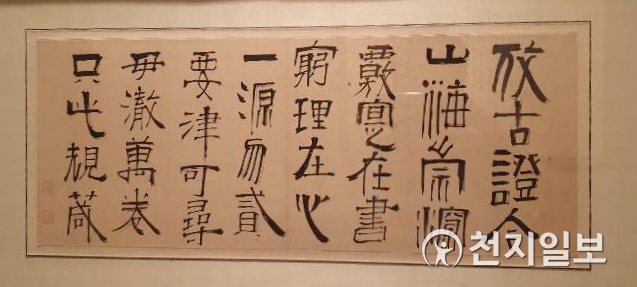 攷古證今
山海崇深
覈實在書
窮理在心
一源勿貳
要津可尋
毌澈萬卷
只此規箴
천지일보